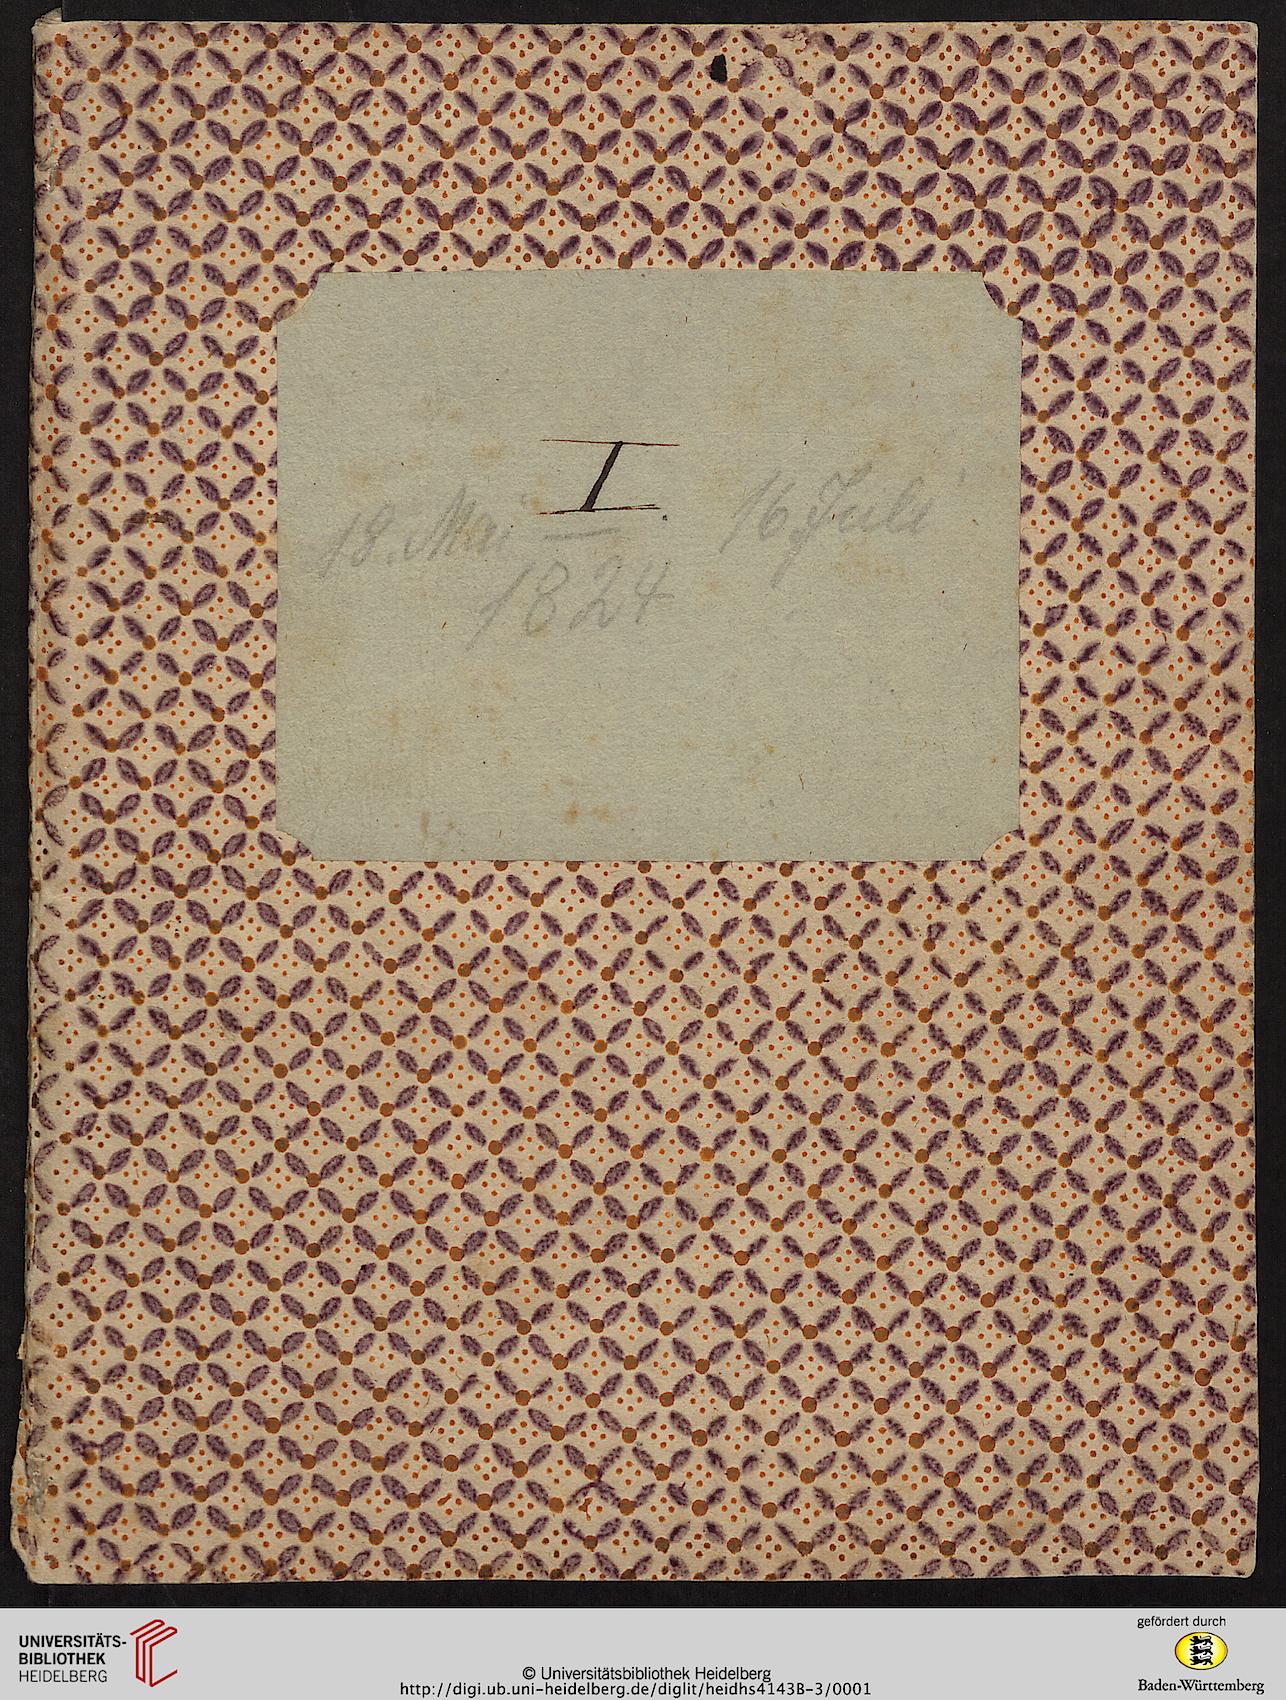 I.
18. Mai — 16 Juli
1824
UNIVERSITÄTS-
BIBLIOTHEK
HEIDELBERG
© Universitätsbibliothek Heidelberg
http://digi.ub.uni-heidelberg.de/diglit/heidhs4143B-3/0001
gefördert durch
Baden-Württemberg